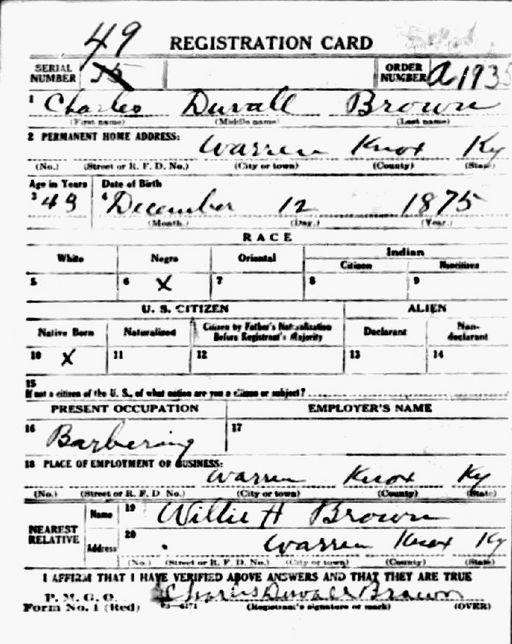 49
REGISTRATION CARD
SERIAL NUMBER ORDER NUMBER A1935
1 Charles Duvall Brown
(First name) (Middle name) (Last name)
2 PERMANENT HOME ADDRESS: Warren Knox Ky
(No.) (Street or R. F. D. No.) (City or town) (County) (State)
Age in Years Date of Birth
3 43 4 December 12 1875
(Month.) (Day.) (Year.)
RACE
White Negro Oriental Indian
Citizen Noncitizen
5 6 X 7 8 9
U. S. CITIZEN ALIEN
Native Born Naturalized Citizen by Father's Naturalization Before Registrant's Majority Declarant Non-declarant
10 X 11 12 13 14
15
If not a citizen of the U. S., of what nation are you a citizen or subject?
PRESENT OCCUPATION EMPLOYER'S NAME
16 Barbering 17
18 PLACE OF EMPLOYMENT OR BUSINESS:
Warren Knox Ky
(No.) (Street or R. F. D. No.) (City or town) (County) (State)
NEAREST RELATIVE
Name 19 Willie H Brown
Address 20 Warren Knox Ky
(No.) (Street or R. F. D. No.) (City or town) (County) (State)
I AFFIRM THAT I HAVE VERIFIED ABOVE ANSWERS AND THAT THEY ARE TRUE
P. M. G. O.
Form No. 1 (Red) Charles Duvall Brown
(Registrant's signature or mark) (OVER)